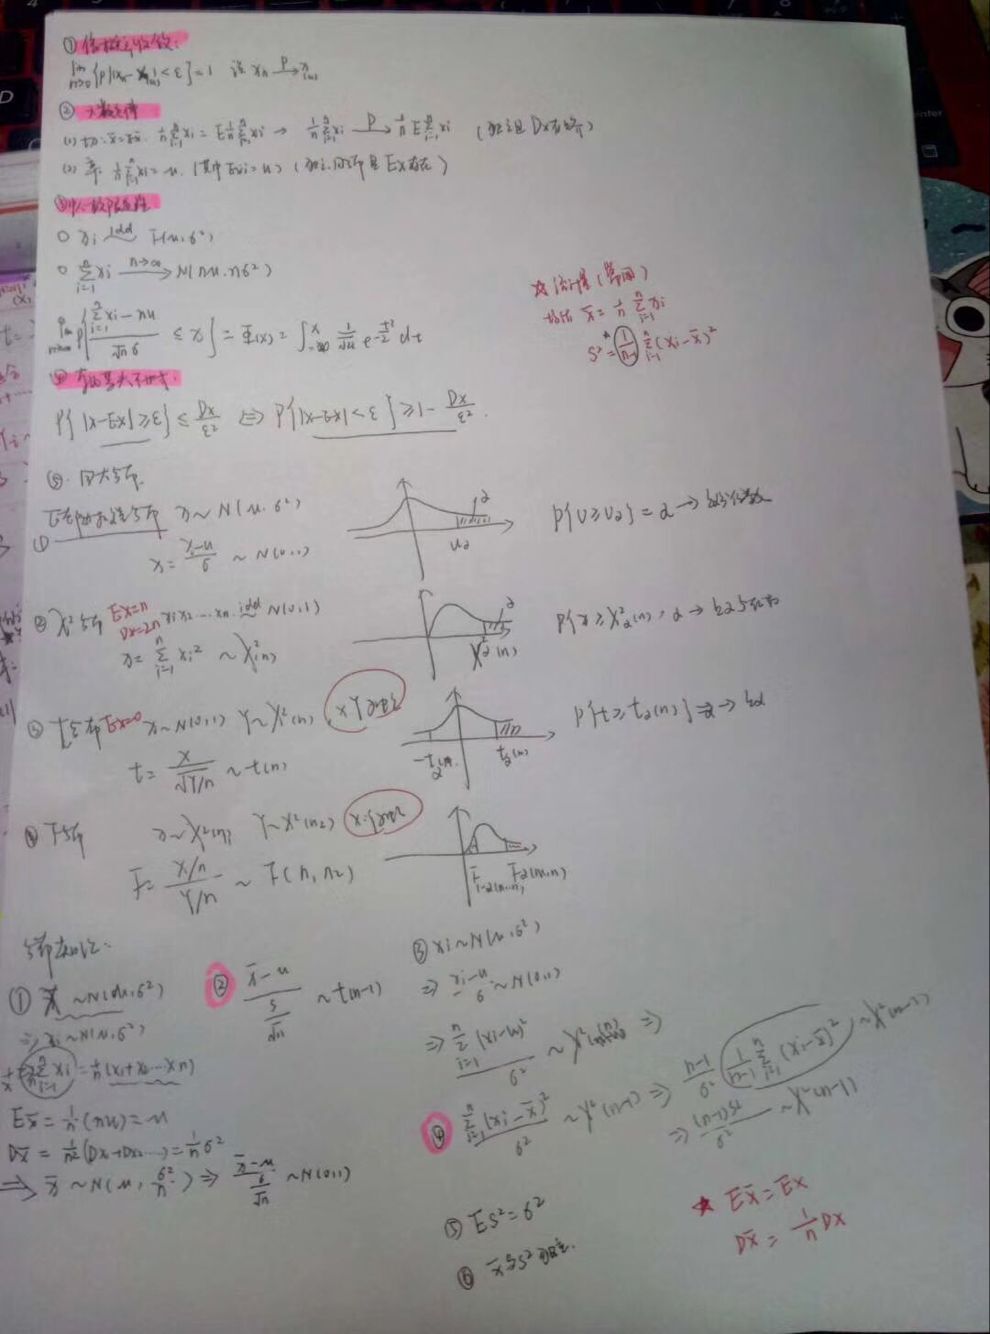 ① 依概率收敛:
lim n→∞ {P|xn - x| < ε} = 1 记 xn —P→ x
② 大数定律
(1) 切: x̄ = Ex̄. 1/n Σ(i=1→n) xi = E 1/n Σ(i=1→n) xi → 1/n Σ(i=1→n) xi —P→ 1/n E Σ(i=1→n) xi (独立且 Dx
(2) 辛 1/n Σ(i=1→n) xi = u. (其中 Exi = u) (独立.同分布且 Ex存在)
③ 中心极限定理
○ xi ~iid F(u, σ²)
○ Σ(i=1→n) xi —n→∞→ N(nu, nσ²)
lim n→∞ P{ (Σ(i=1→n) xi - nu)/(√n σ) ≤ x } = Φ(x) = ∫(-∞→x) 1/√2π e^(-t²/2) dt
☆ 统计量(常用)
均值 x̄ = 1/n Σ(i=1→n) xi
S² = 1/(n-1) Σ(i=1→n) (xi - x̄)²
④
P{|x-Ex| ≥ ε} ≤ Dx/ε² ⇔ P{|x-Ex| < ε} ≥ 1 - Dx/ε².
⑤. 四大分布
① 正态分布 x ~ N(u, σ²)
x = (x-u)/σ ~ N(0,1)
α
uα
P{U ≥ uα} = α → 上α分位数
② χ²分布 Ex=n Dx=2n x1 x2 ... xn iid ~ N(0,1)
x = Σ(i=1→n) xi² ~ χ²(n)
α
χ²α(n)
P{x ≥ χ²α(n)} = α → 上α分位数
③ t分布 Ex=0 x ~ N(0,1) Y ~ χ²(n) x Y 独立
t = X/√(Y/n) ~ t(n)
-tα/2(n) tα(n)
P{t ≥ tα(n)} = α → 上α
④ F分布 x ~ χ²(n1) Y ~ χ²(n2) x.Y独立
F = (X/n)/(Y/n) ~ F(n1, n2)
F1-α(n1,n2) Fα(n1,n2)
① X ~ N(u, σ²)
⇒ xi ~ N(u, σ²)
x̄ = 1/n Σ(i=1→n) xi = 1/n (x1+x2...xn)
Ex̄ = 1/n (nu) = u
Dx̄ = 1/n² (Dx1+Dx2...) = 1/n σ²
⇒ x̄ ~ N(u, σ²/n) ⇒ (x̄-u)/(σ/√n) ~ N(0,1)
② (x̄-u)/(S/√n) ~ t(n-1)
③ xi ~ N(u, σ²)
⇒ (xi-u)/σ ~ N(0,1)
⇒ Σ(i=1→n) (xi-u)²/σ² ~ χ²(n) ⇒
④ Σ(i=1→n) (xi-x̄)²/σ² ~ χ²(n-1) ⇒ (n-1)/σ² · 1/(n-1) Σ(i=1→n) (xi-x̄)² ~ χ²(n-1)
⇒ (n-1)S²/σ² ~ χ²(n-1)
⑤ ES² = σ²
⑥ x̄与S²独立.
★ Ex̄ = Ex
Dx̄ = 1/n Dx